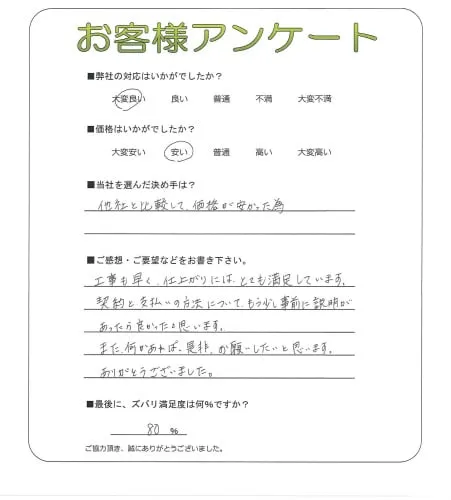 お客様アンケート
■弊社の対応はいかがでしたか？
大変良い 良い 普通 不満 大変不満
■価格はいかがでしたか？
大変安い 安い 普通 高い 大変高い
■当社を選んだ決め手は？
他社と比較して、価格が安かった為
■ご感想・ご要望などをお書き下さい。
工事も早く、仕上がりには、とても満足しています。
契約と支払いの方法について、もう少し事前に説明が
あったら良かったと思います。
また、何かあれば、是非、お願いしたいと思います。
ありがとうございました。
■最後に、ズバリ満足度は何％ですか？
80 ％
ご協力頂き、誠にありがとうございました。